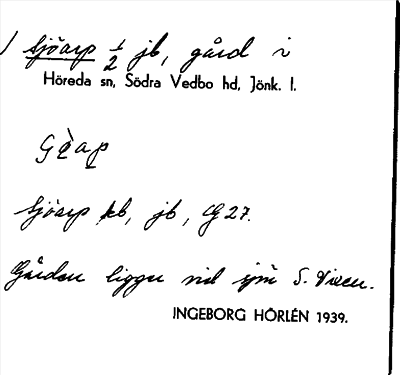 Sjöarp ½ jb, gård i
Höreda sn, Södra Vedbo hd, Jönk. l.
Sjöarp kb, jb, G 27.
Gården ligger vid sjön S. Vixen.
INGEBORG HÖRLÉN 1939.